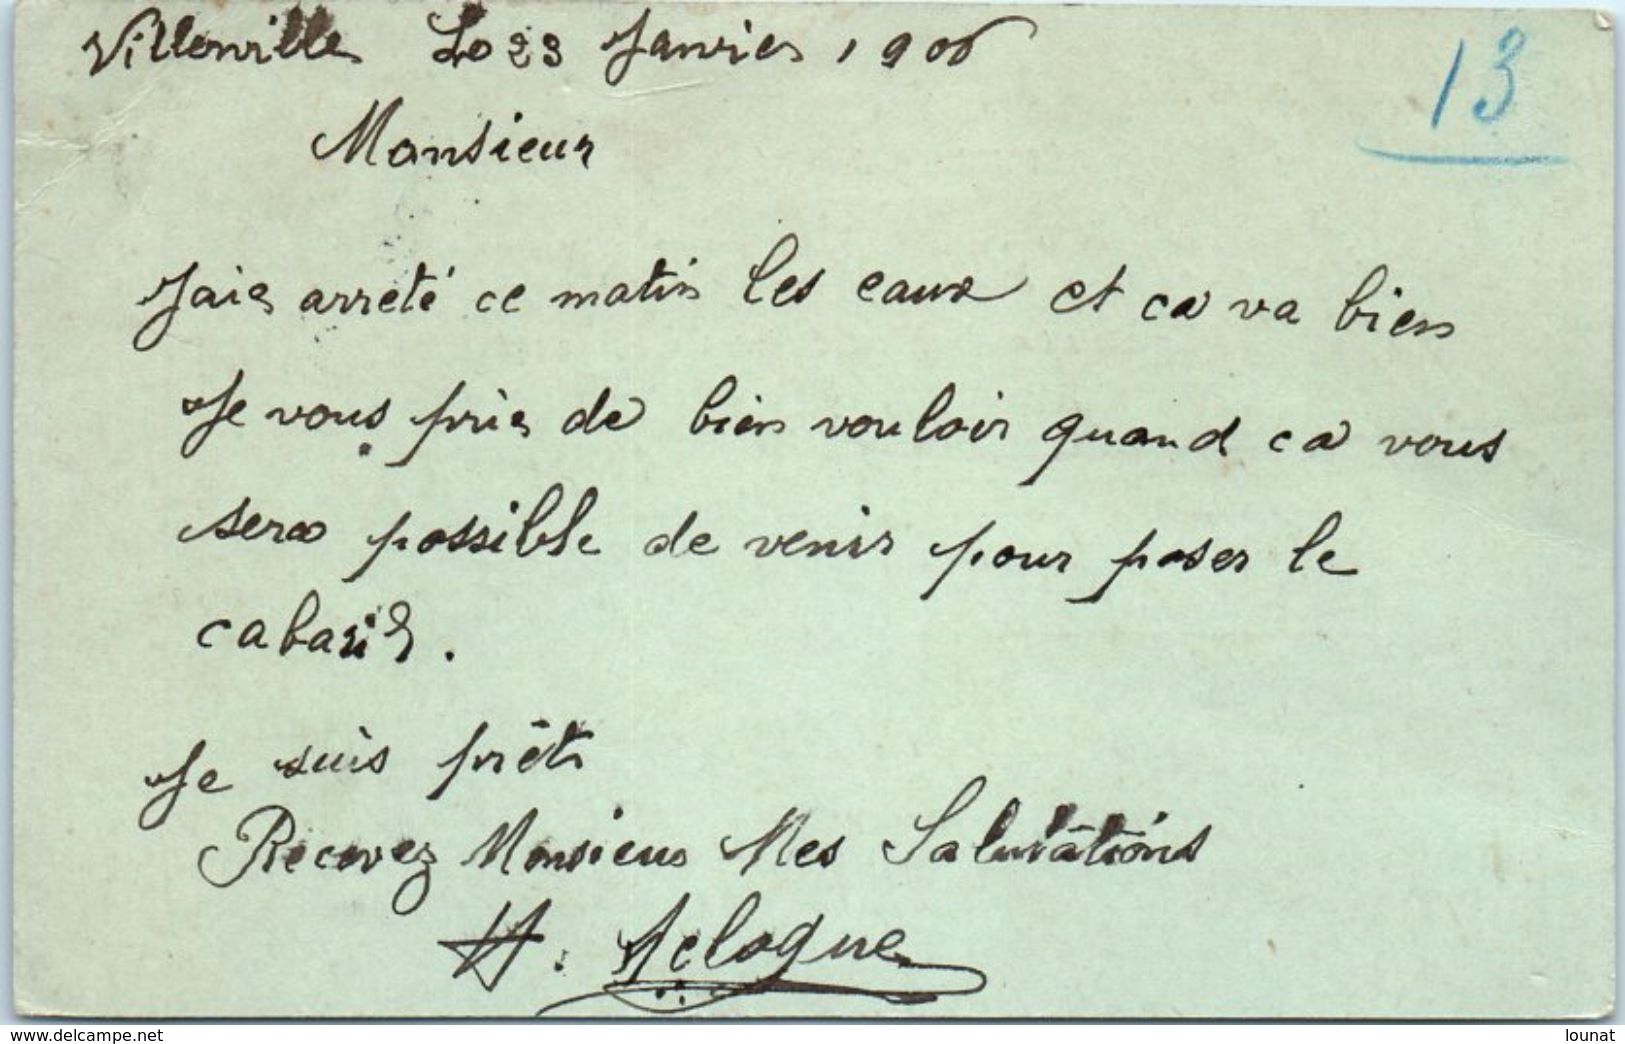 Villenville Le 23 Janvier 1906
13
Monsieur
Jaie arreté ce matin les eaux et ca va bien
Je vous prie de bien vouloir quand ca vous
sera possible de venir pour poser le
cabaris.
Je suis prêt
Recevez Monsieur Mes Salutations
H.
delcampe.net
lounat